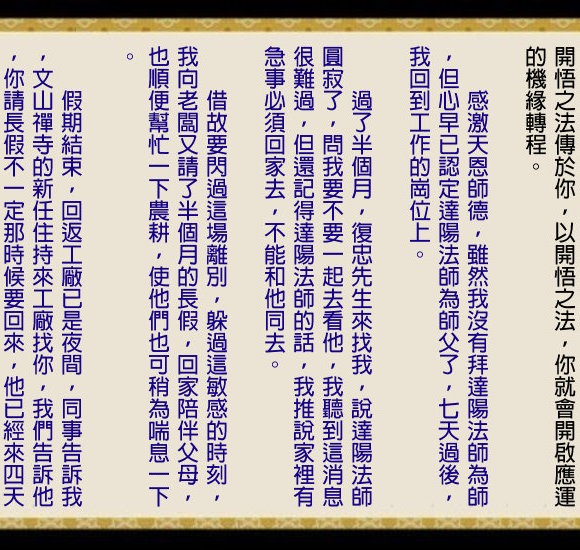 開悟之法傳於你，以開悟之法，你就會開啟應運
的機緣轉程。
感激天恩師德，雖然我沒有拜達陽法師為師
，但心早已認定達陽法師為師父了，七天過後，
我回到工作的崗位上。
過了半個月，復忠先生來找我，說達陽法師
圓寂了，問我要不要一起去看他，我聽到這消息
很難過，但還記得達陽法師的話，我推說家裡有
急事必須回家去，不能和他同去。
借故要閃過這場離別，躲過這敏感的時刻，
我向老闆又請了半個月的長假，回家陪伴父母，
也順便幫忙一下農耕，使他們也可稍為喘息一下
。
假期結束，回返工廠已是夜間，同事告訴我
，文山禪寺的新任住持來工廠找你，我們告訴他
，你請長假不一定那時候要回來，他已經來四天